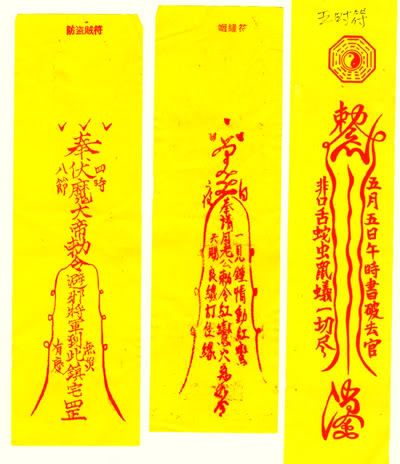 防盗賊符
奉伏魔大帝勅令避邪將軍到此鎮宅罡
四時
八節
無災
有慶
姻緣符
一見鍾情動紅鸞
奉請月老公勅令紅鸞
天賜良緣訂佳緣
五時符
勅
五月五日午時書破去官
非口舌蛇虫鼠蟻一切尽